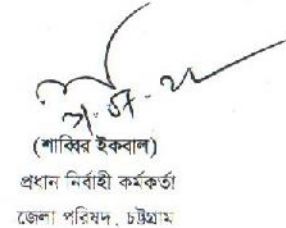 (শাব্বির ইকবাল)
প্রধান নির্বাহী কর্মকর্তা
জেলা পরিষদ, চট্টগ্রাম